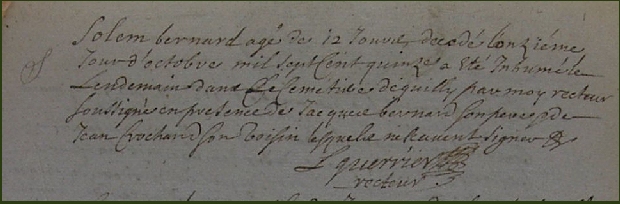 Solem bernard agé de 12 Jours, decedé lonziéme
Jour d'octobre mil Sept Cent quinze a Eté Inhumé le
Lendemain dans Le Cemétiere déquilly par moy recteur
soussigné en presence de Jacques bernard son pere & de
Jean Crochard son voisin lesquels ne scavent signer &
L guerrier
recteur